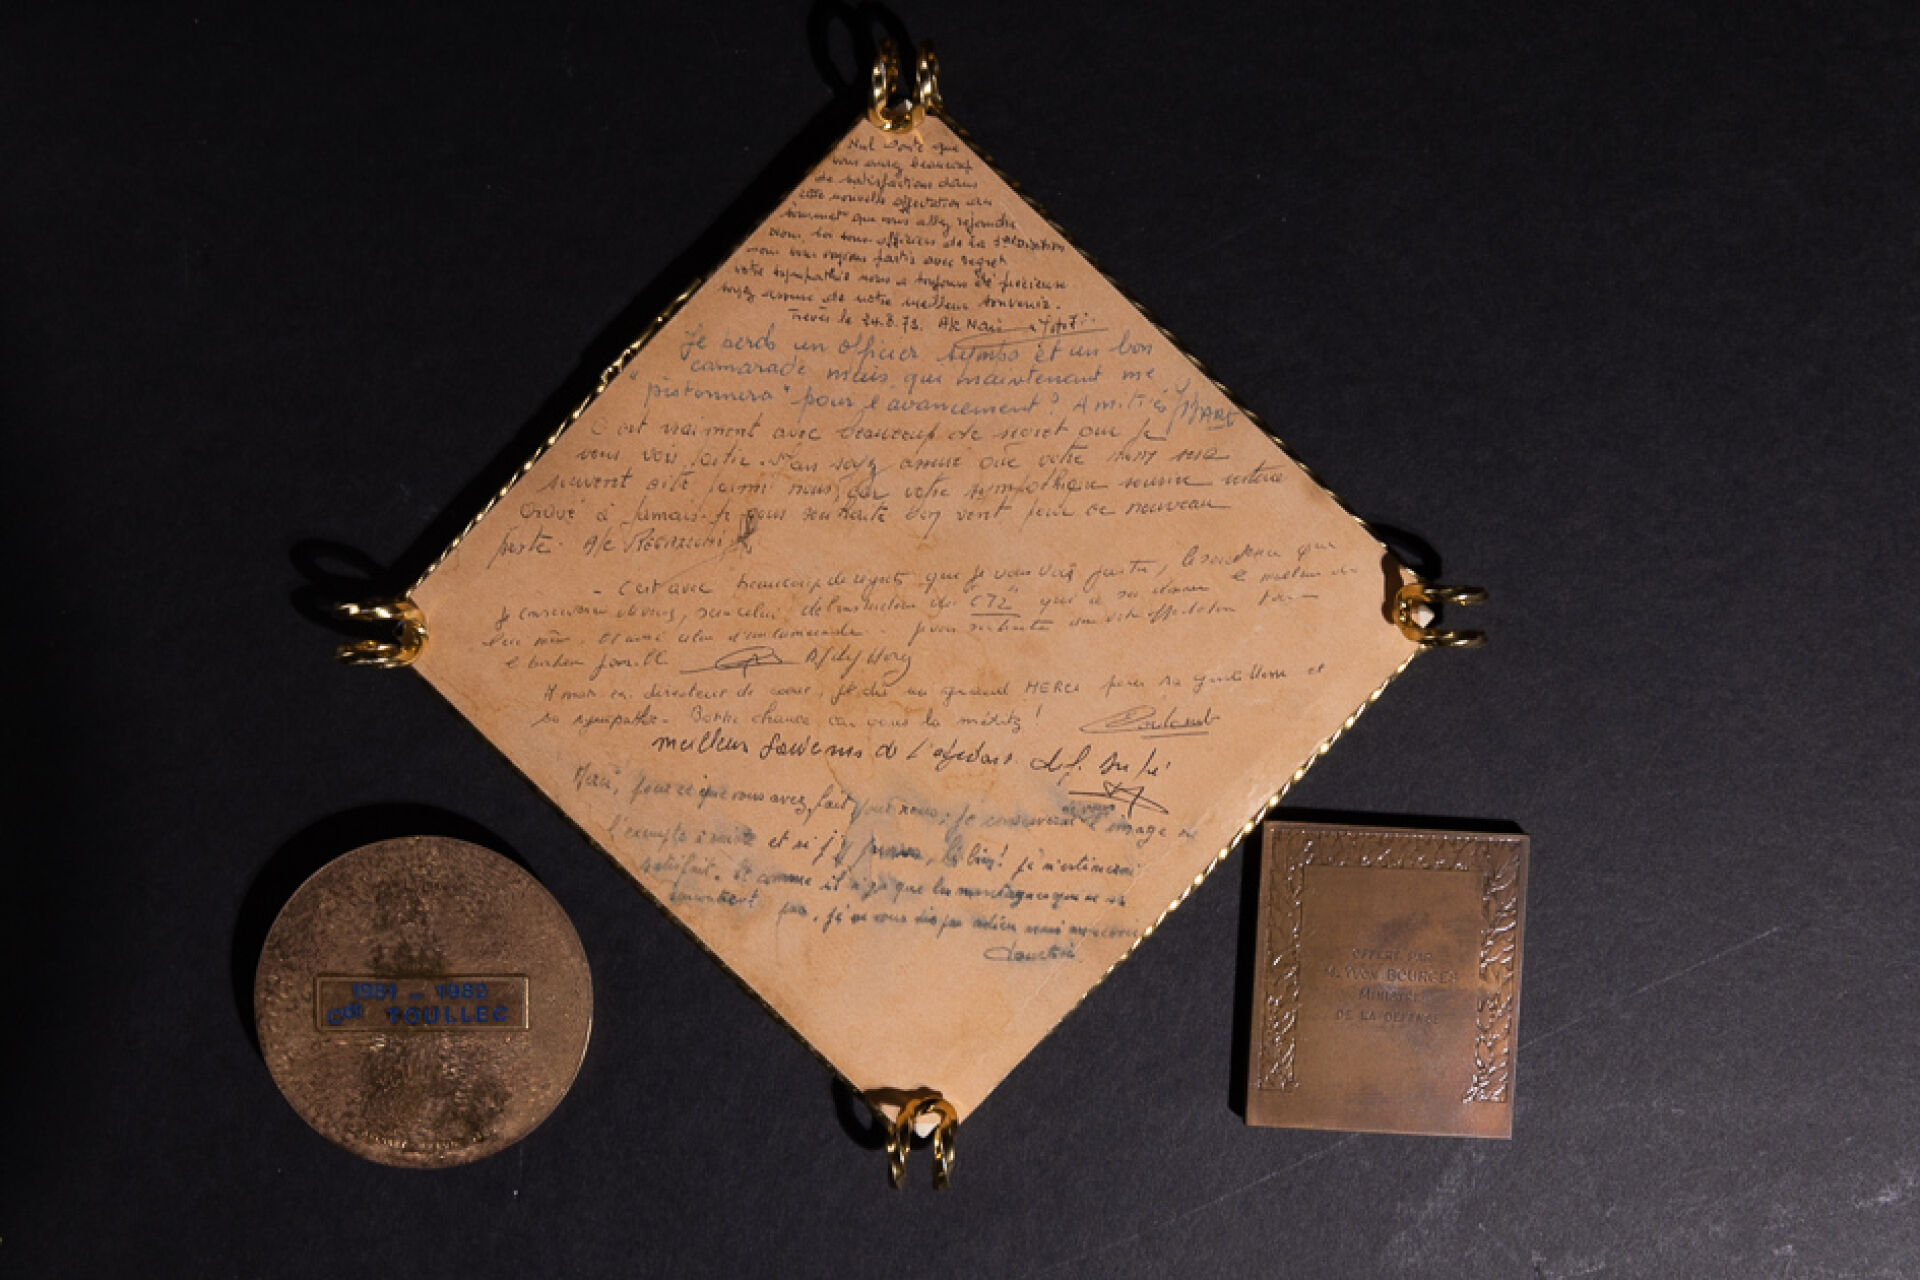 Nul doute que
vous aurez beaucoup
de satisfactions dans
cette nouvelle affectation au
sommet que vous allez rejoindre
Nous, les sous officiers de la
nous vous voyons partir avec regret
votre sympathie nous a toujours été précieuse
soyez assuré de notre meilleur souvenir.
Trèves le 24.8.73. A/c
Je perds un officier sympa et un bon
camarade mais qui maintenant me
"pistonnera" pour l'avancement? Amitiés
C'est vraiment avec beaucoup de regret que je
vous vois partir. Mais soyez assuré que votre nom sera
souvent cité parmi nous, car votre sympathique sourire restera
gravé à jamais. Je vous souhaite bon vent pour ce nouveau
poste. A/c
- C'est avec beaucoup de regrets que je vous vois partir, le souvenir que
je conserverai de vous, sera celui de l'instructeur du "CT2" qui a su donner le meilleur de
lui même. Et aussi celui d'un camarade.
A mon ex. directeur de cours, je dis un grand MERCI pour sa gentillesse et
sa sympathie. Bonne chance car vous la méritez!
meilleur souvenir de l'adjudant
pour ce que vous avez fait pour nous, je conserverai de vous l'image de
l'exemple à suivre et si j'y parviens, et bien! je m'estimerai
satisfait. Et comme il n'y a que les montagnes qui ne se
rencontrent pas, je ne vous dis pas adieu mais au revoir
1981 - 1982
Cdt TOULLEC
OFFERT PAR
M. YVON BOURGES
MINISTRE
DE LA DEFENSE